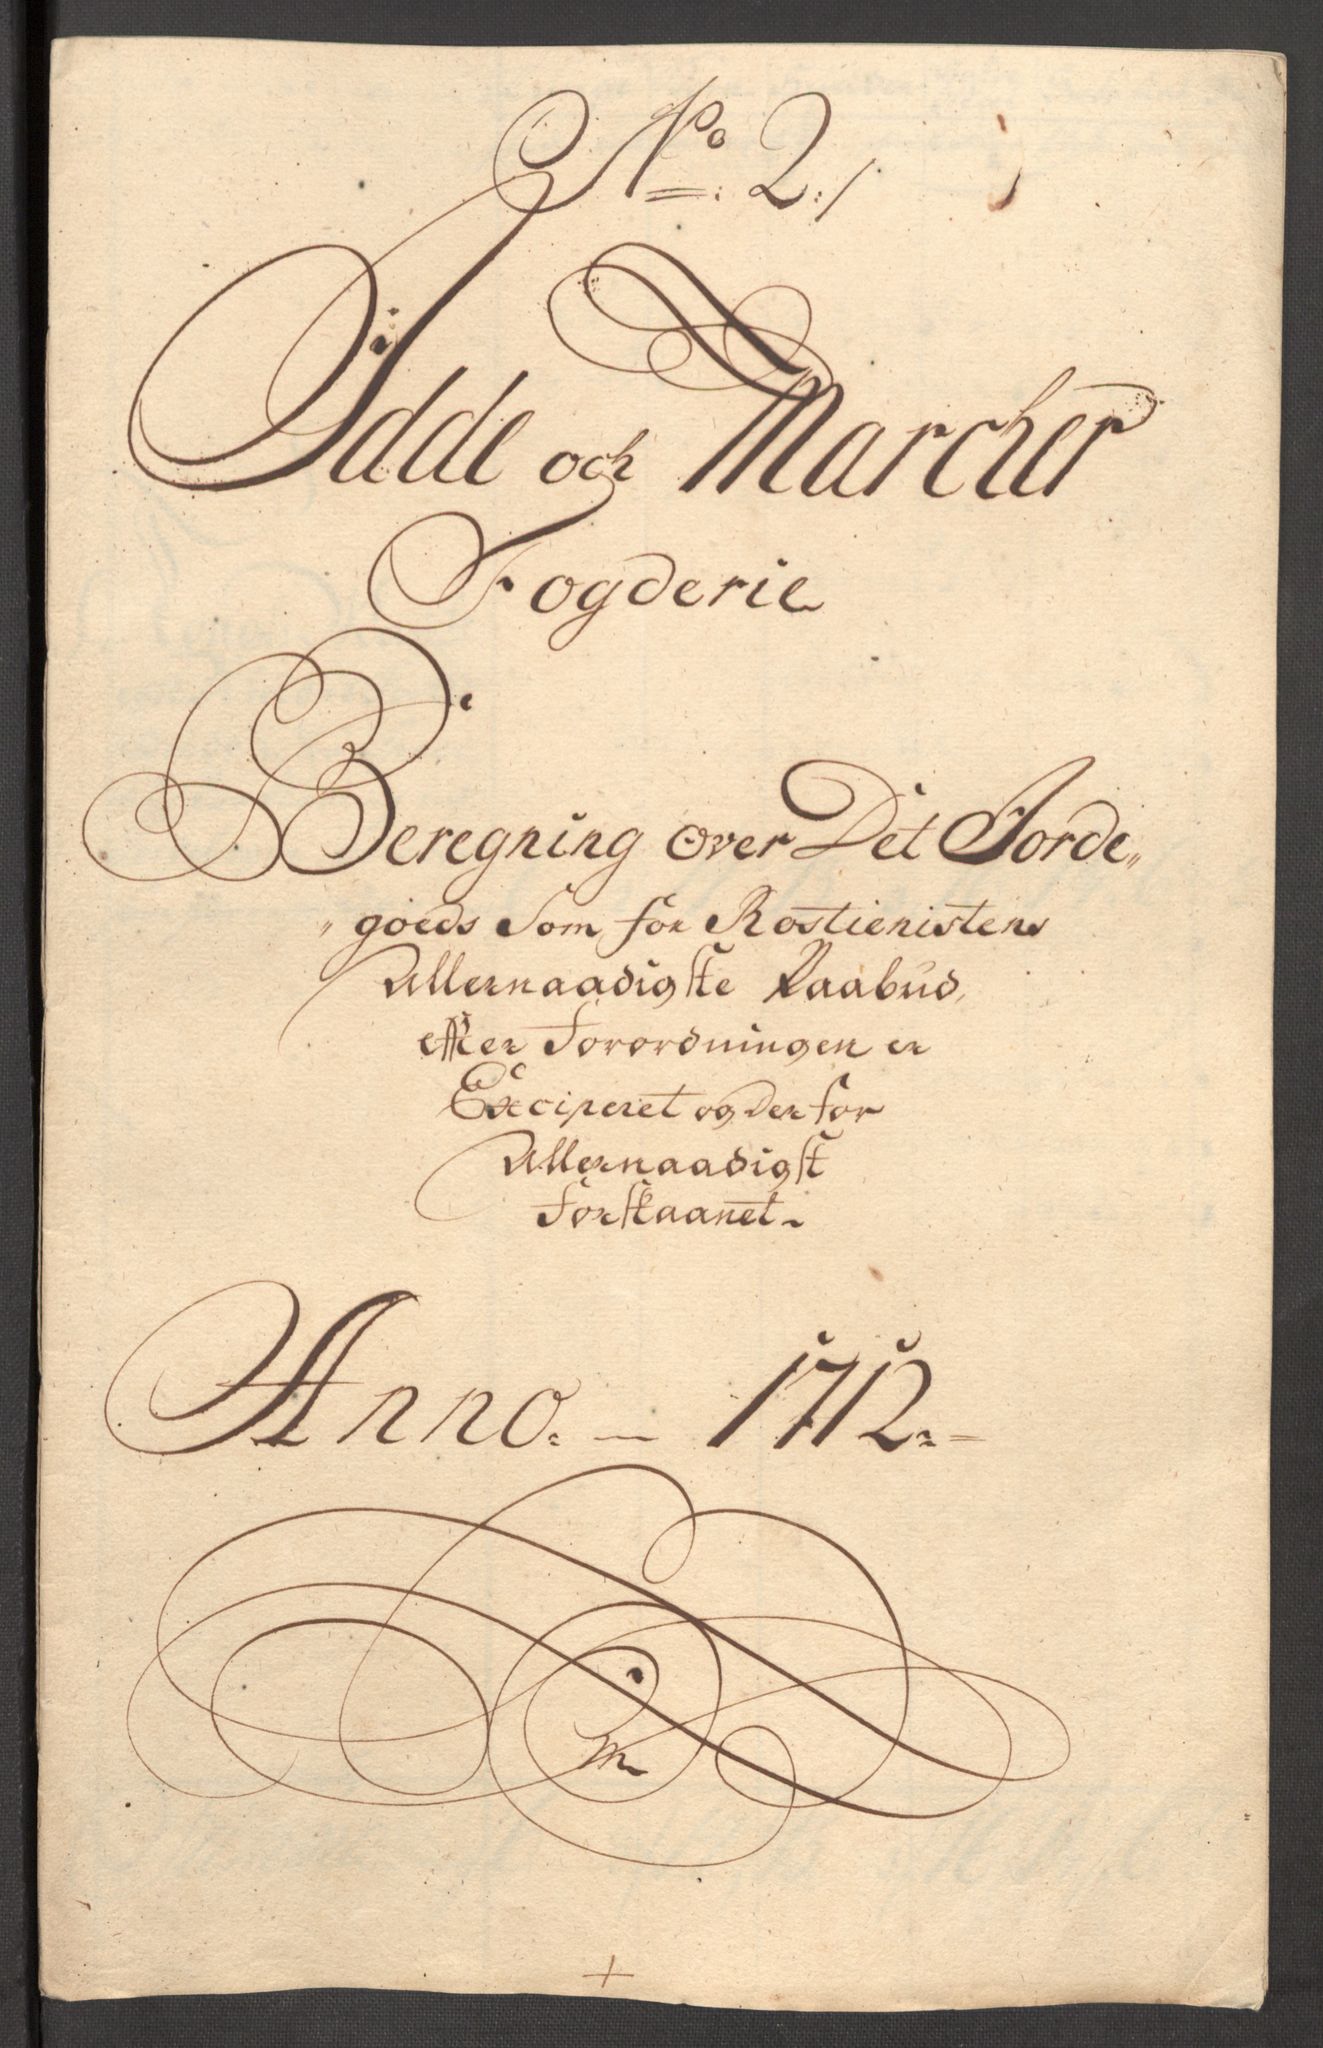 No: 2:/
Idde och Marcher
Fogderie
Beregning over Det Jorde„
„goeds Som for Rostienistens
Allernaadigste Paabud,
effter Forordningen er
Exciperet og der for
Allernaadigst
Forskaanet.
Anno. — 1712.